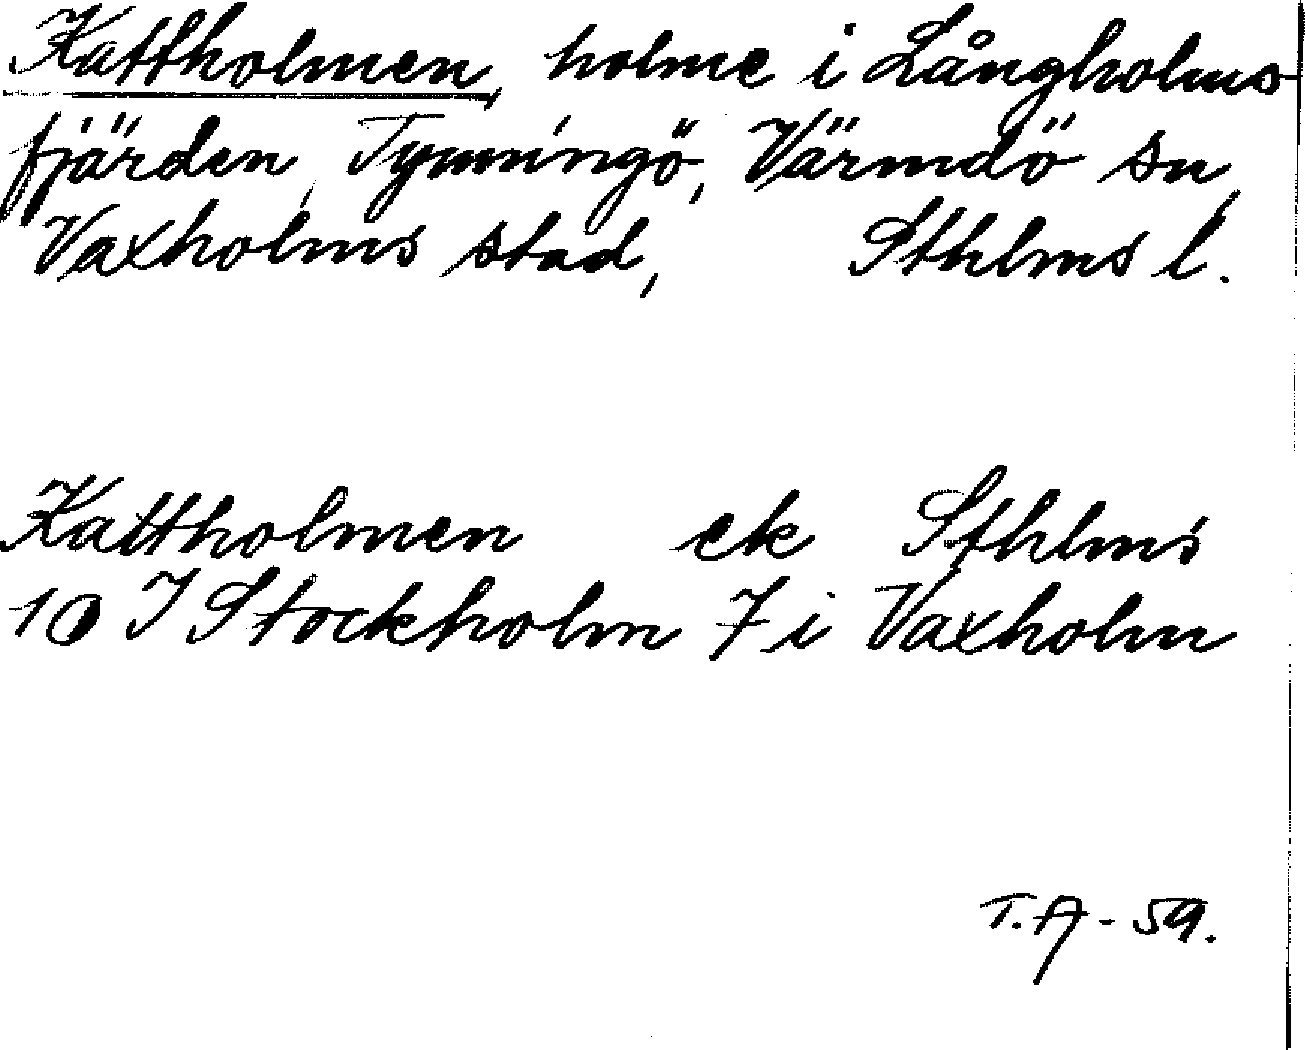 Kattholmen, holme i Långholms-
fjärden, Tynningö, Värmdö sn,
Vaxholms stad, Sthlms l.
Kattholmen ek Sthlms
10 I Stockholm 7 i Vaxholm
T.A - 59.